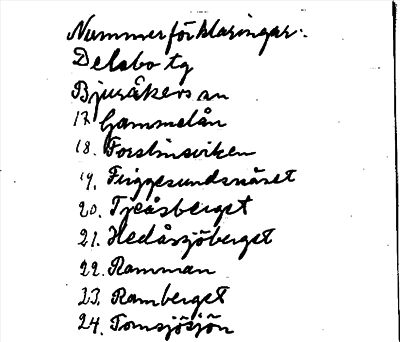 Nummerförklaringar:
Delsbo tg
Bjuråkers sn
17. Gammelån
18. Forslinsviken
19. Friggesundsnäset
20. Tjeåsberget
21. Hedåsjöberget
22. Ramman
23. Ramberget
24. Tomsjösjön